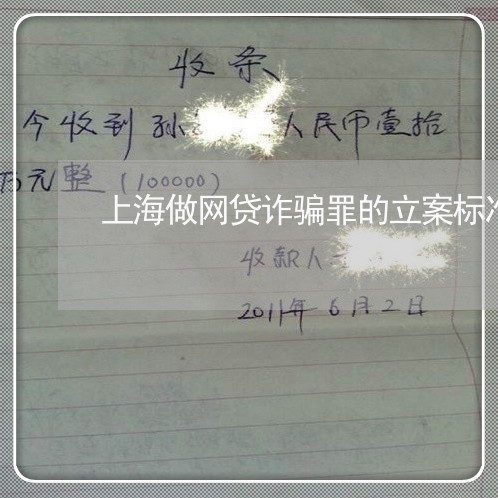 收条
今收到孙 人民币壹拾
万元整(100000)
上海做网贷诈骗罪的立案标准
收款人
2011年6月2日